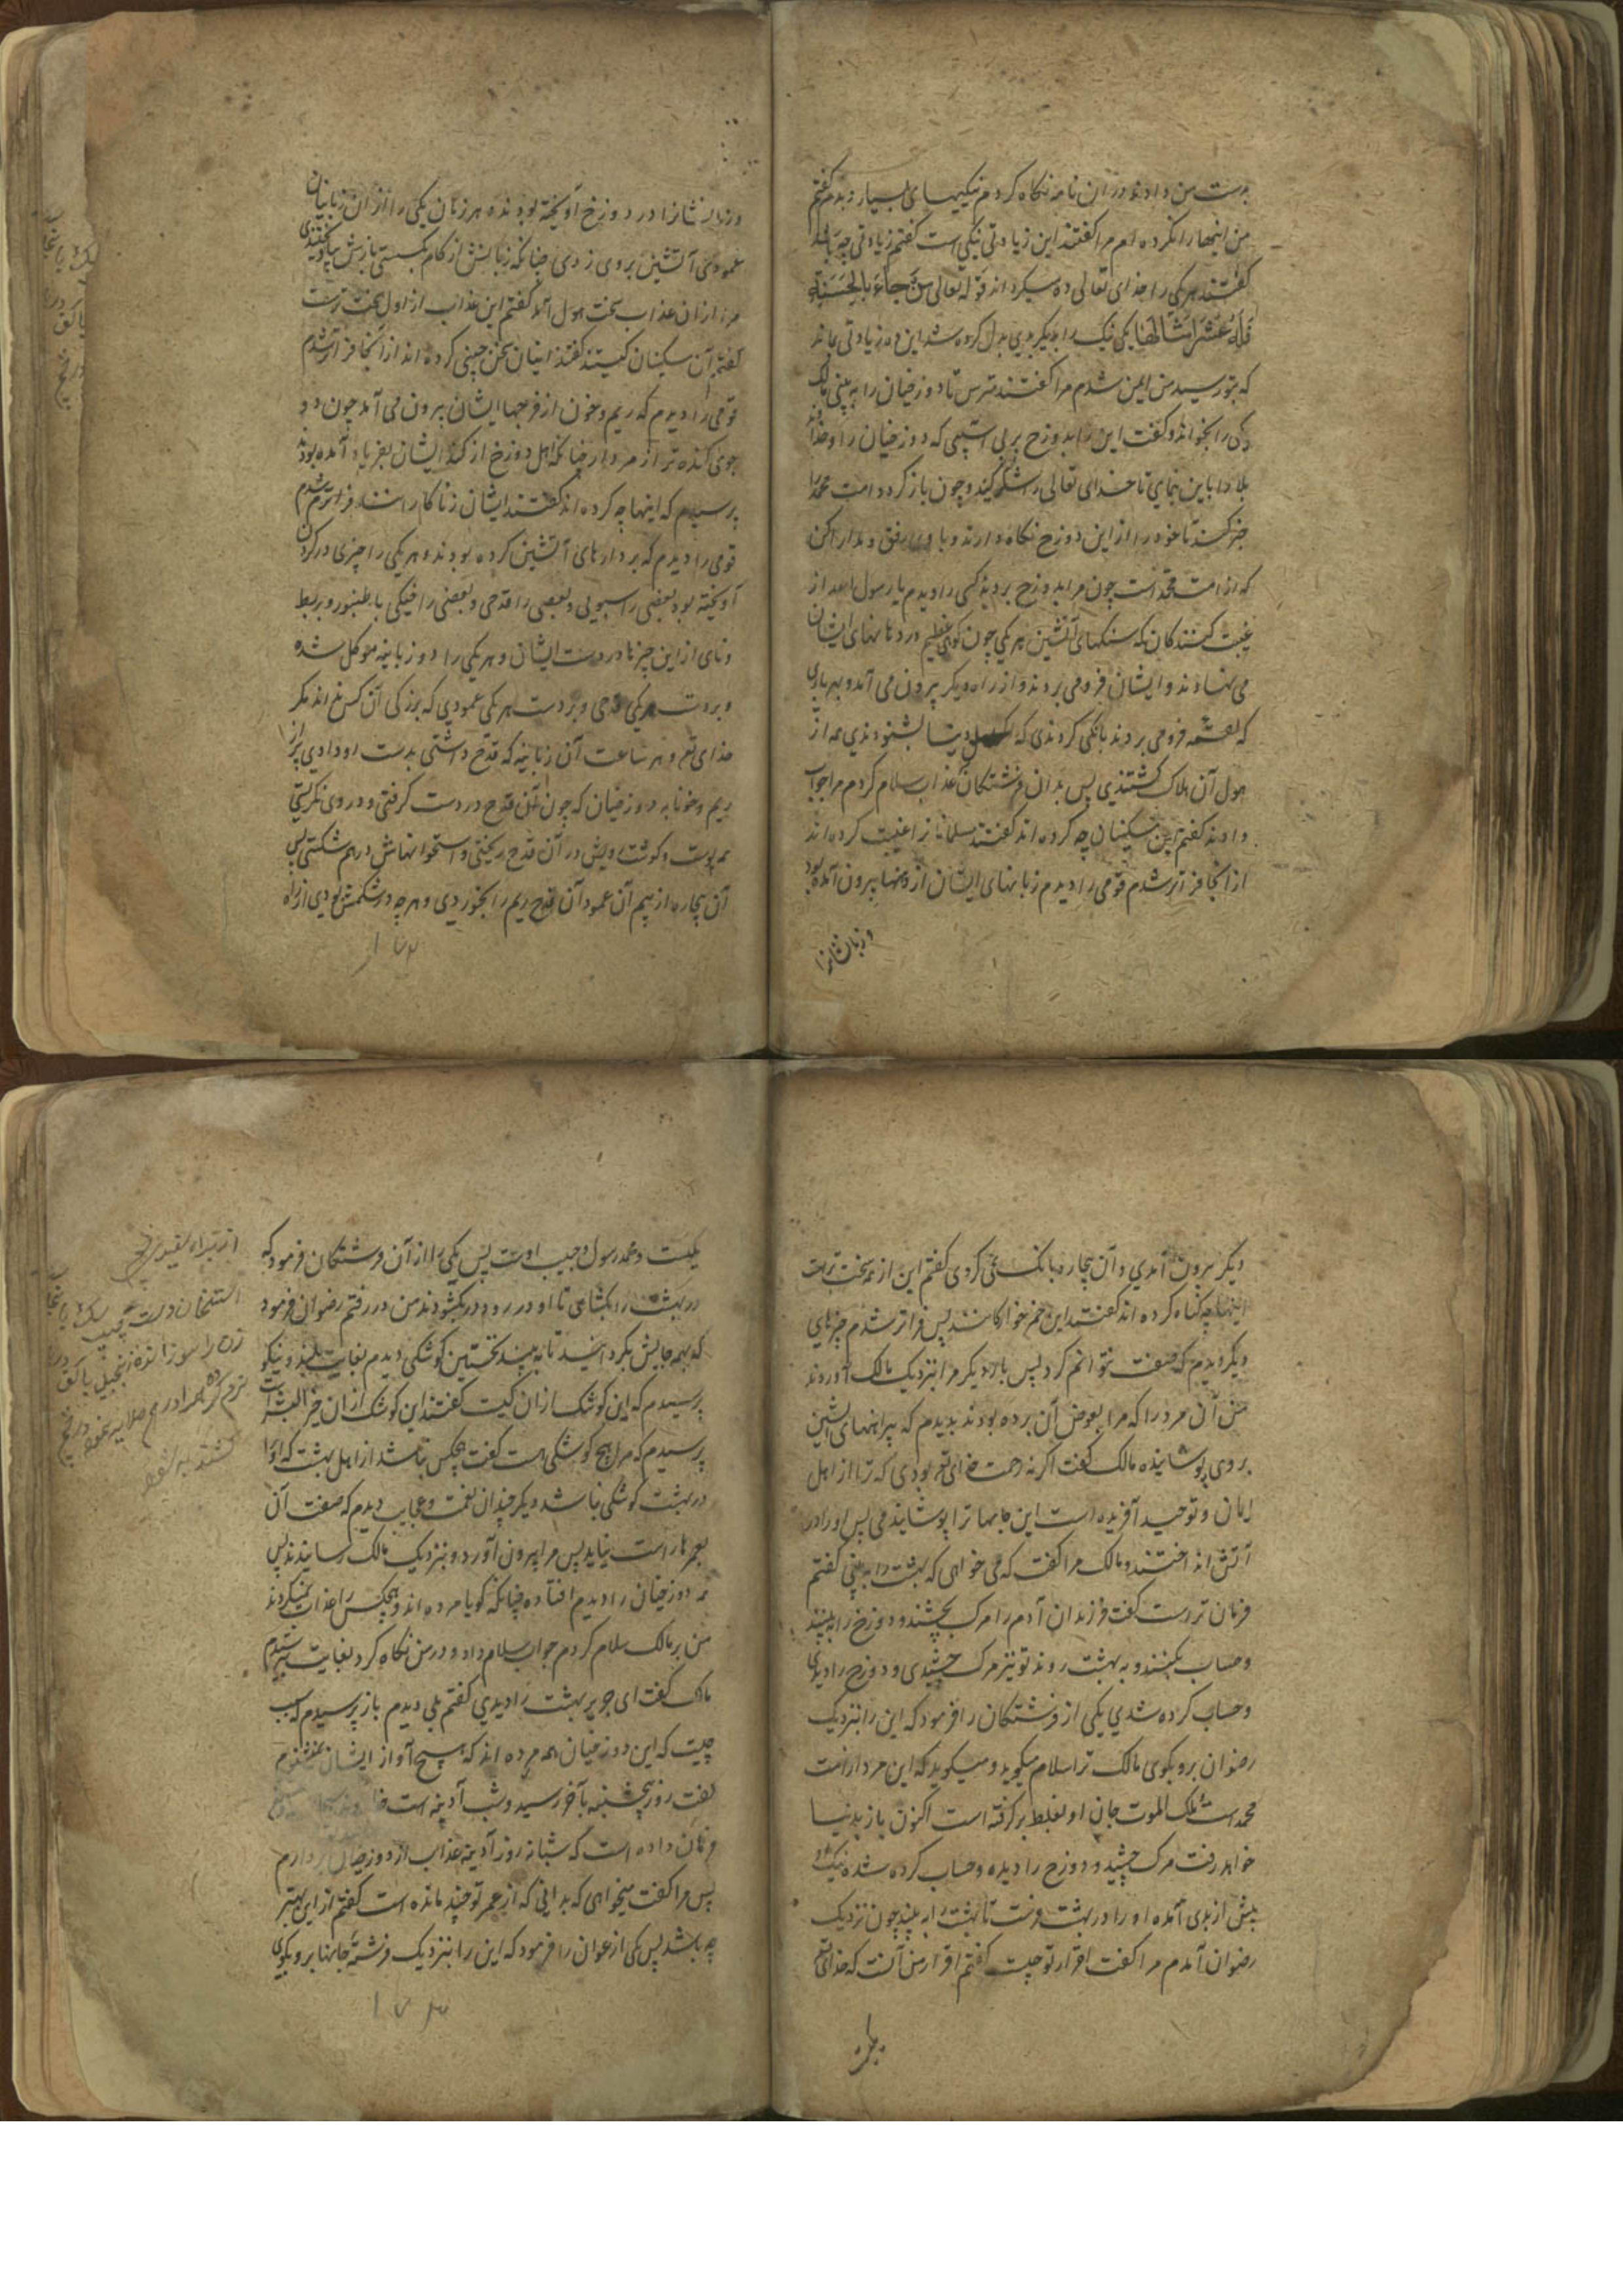 بدست من دادند در آن نامه نگاه کردم نیکیهای بسیار دیدم گفتم
من اینها را نکرده‌ام مرا گفتند این زیادتی نیکی است گفتم زیادتی چه باشد
گفتند هر یکی را خدای تعالی ده میکرداند قوله تعالی من جاء بالحسنة
فله عشر امثالها یکی نیک را بدیگر بدی بدل کرده شد این ده زیادتی ماند
که بتو رسید من ایمن شدم مرا گفتند مترس تا دوزخیان را به بینی مالک
یکی را بخواند و گفت این را بدوزخ بر که دوزخیان را و خداوند
بلا را باین بنمای تا خدای تعالی را شکر کند و چون باز گردد امت محمد را
خبر کند تا خود را از این دوزخ نگاه دارند و با وی رفق و مدارا کن
که از امت محمد است چون مرا بدوزخ بردند کسی را دیدم یا رسول الله از
غیبت کنندگان که سنگهای آتشین هر یکی چون کوهی عظیم در دهانهای ایشان
می نهادند و ایشان فرو می بردند و از راه دیگر بیرون می آمد و بهر باری
که لقمه فرو می بردند بانگی کردندی که اهل دنیا بشنودندی همه از
هول آن هلاک گشتندی پس بدان فرشتگان عذاب سلام کردم مرا جواب
دادند گفتم این مسکینان چه کرده اند گفتند مسلمانان را غیبت کرده اند
از آنجا فراتر شدم قومی را دیدم زبانهای ایشان از دهنها بیرون آمده بود
و زبانشانرا
و زبانشانرا در دوزخ آویخته بودند و هر زمان یکی را از آن زبانیان
عمودی آتشین بر وی زدی چنانکه زبانش از کام بگسستی بازش بیاویختندی
مرا از آن عذاب سخت هول آمد گفتم این عذاب از اول سخت ترست
گفتم این مسکینان کیستند گفتند اینان سخن چینی کرده اند از آنجا فراتر شدم
قومی را دیدم که ریم و خون از فرجها ایشان بیرون می آمد چون دو
جوی گنده تر از مردار چنانکه اهل دوزخ از گند ایشان بفریاد آمده بودند
پرسیدم که اینها چه کرده اند گفتند ایشان زنا کارانند فراتر شدم
قومی را دیدم که بر دارهای آتشین کرده بودند و هر یکی را چیزی در گردن
آویخته بود بعضی را سبویی و بعضی را قدحی و بعضی را خیکی یا طنبور و بربط
و نای از این چیزها در دست ایشان و هر یکی را دو زبانیه موکل شده
و بر دست هر یکی قدحی و بر دست هر یکی عمودی که بزرگی آن کس نداند مگر
خدای تعالی و هر ساعت آن زبانیه که قدح داشتی بدست او دادی پر از
ریم و خونابه دوزخیان که چون آن قدح در دست گرفتی و در وی نگریستی
همه پوست و گوشت رویش در آن قدح ریختی و استخوانهاش در هم شکستی پس
آن بیچاره از بیم آن عمود آن قدح ریم را بخوردی و هر چه در شکمش بودی از راه
۱۷۲
دیگر بیرون آمدی و آن بیچاره بانگ می کردی گفتم این از همه سخت ترست
اینها چه گناه کرده اند گفتند این خمر خوارگانند پس فراتر شدم چیزهای
دیگر دیدم که صفت نتوانم کرد پس بار دیگر مرا بنزدیک مالک آوردند
من آن مرد را که مرا بعوض آن برده بودند بدیدم که پیراهنهای آتشین
بر وی پوشانیده مالک گفت اگر نه رحمت خدای تعالی بودی که ترا از اهل
ایمان و توحید آفریده است این جامها ترا پوشانیدمی پس او را در
آتش انداختند و مالک مرا گفت که می خواهی که بهشت را به بینی گفتم
فرمان تر راست گفت فرزندان آدم را مرگ بچشند و دوزخ را ببینند
و حساب بکنند و به بهشت روند تو نیز مرگ چشیدی و دوزخ را دیدی
و حساب کرده شدی یکی از فرشتگان را فرمود که این را بنزدیک
رضوان بر و بگوی مالک ترا سلام میگوید و میگوید که این مرد از امت
محمد است ملک الموت جان او بغلط برگرفته است اکنون باز بدنیا
خواهد رفت مرگ چشید و دوزخ را دیده و حساب کرده شده نیکی او
بیش از بدی آمده او را در بهشت فرست تا بهشت را به بیند چون نزدیک
رضوان آمدم مرا گفت اقرار تو چیست گفتم اقرار من آنست که خدای تعالی
یکیست و محمد رسول و حبیب اوست پس یکی را از آن فرشتگان فرمود که
در بهشت را بگشای تا او در رود در بگشودند من در رفتم رضوان فرمود
که بهمه جایش بگردانید تا به بیند نخستین کوشکی دیدم بغایت بلند و نیکو
پرسیدم که این کوشک از آن کیست گفتند این کوشک از آن خیر البشر است
پرسیدم که مرا هیچ کوشکی هست گفت هیچکس نباشد از اهل بهشت که او را
در بهشت کوشکی نباشد دیگر چندان نعمت و عجایب دیدم که صفت آن
بعمرها راست نیاید پس مرا بیرون آورد و بنزدیک مالک رسانیدند پس
همه دوزخیان را دیدم افتاده چنانکه گویا مرده اند و هیچکس را عذاب نمیکردند
من بر مالک سلام کردم جواب سلام داد و در من نگاه کرد بغایت بترسیدم
مالک گفت ای جویر بهشت را دیدی گفتم بلی دیدم باز پرسیدم سبب
چیست که این دوزخیان همه مرده اند که هیچ آواز ایشان نمیشنوم
گفت روز پنجشنبه بآخر رسید و شب آدینه است
فرمان داده است که شبانه روز آدینه عذاب از دوزخیان بردارم
پس مرا گفت میخواهی که بدانی که از عمر تو چند مانده است گفتم از این بهتر
چه باشد پس یکی از عوان را فرمود که این را بنزدیک فرشته جانها بر و بگوی
۱۷۳